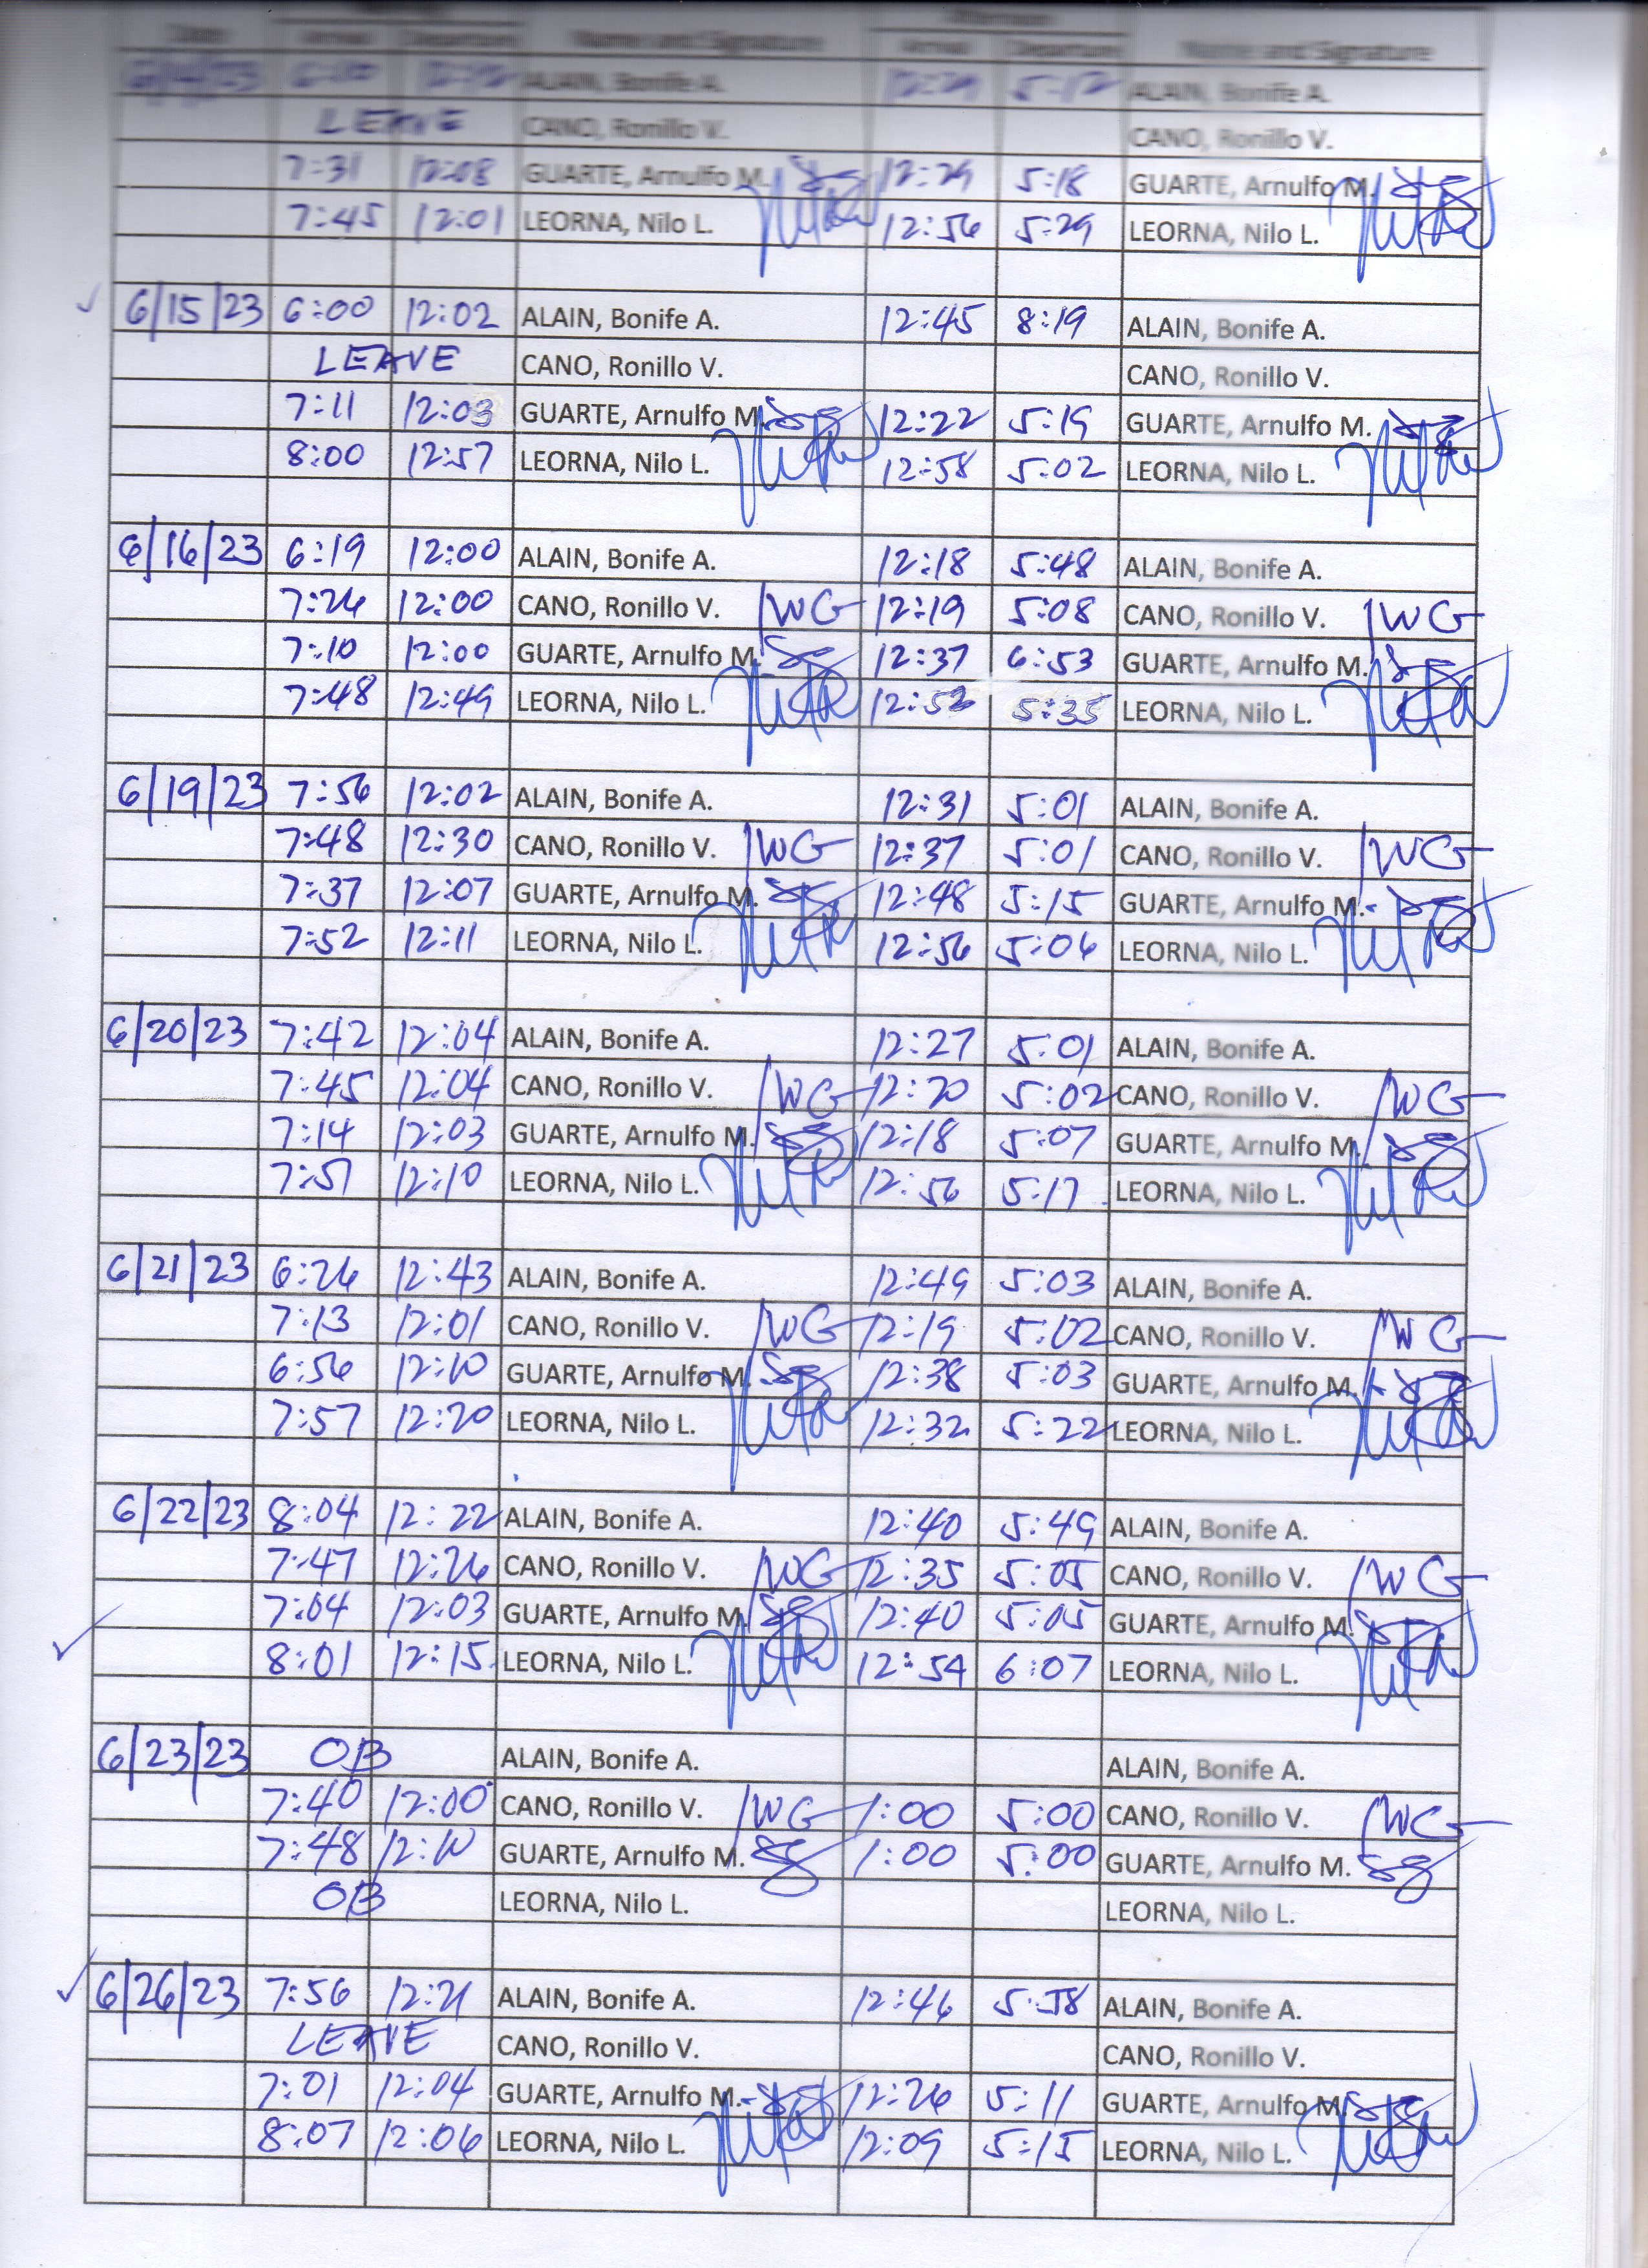 Date Arrival Departure Name and Signature Arrival Departure Name and Signature
ALAIN, Bonife A. 12:29 5:12 ALAIN, Bonife A.
LEAVE CANO, Ronillo V. CANO, Ronillo V.
7:31 12:08 GUARTE, Arnulfo M. 12:29 5:18 GUARTE, Arnulfo M.
7:45 12:01 LEORNA, Nilo L. 12:56 5:29 LEORNA, Nilo L.
6/15/23 6:00 12:02 ALAIN, Bonife A. 12:45 8:19 ALAIN, Bonife A.
LEAVE CANO, Ronillo V. CANO, Ronillo V.
7:11 12:03 GUARTE, Arnulfo M. 12:22 5:19 GUARTE, Arnulfo M.
8:00 12:57 LEORNA, Nilo L. 12:58 5:02 LEORNA, Nilo L.
6/16/23 6:19 12:00 ALAIN, Bonife A. 12:18 5:48 ALAIN, Bonife A.
7:26 12:00 CANO, Ronillo V. 12:19 5:08 CANO, Ronillo V.
7:10 12:00 GUARTE, Arnulfo M. 12:37 6:53 GUARTE, Arnulfo M.
7:48 12:49 LEORNA, Nilo L. 12:53 5:35 LEORNA, Nilo L.
6/19/23 7:56 12:02 ALAIN, Bonife A. 12:31 5:01 ALAIN, Bonife A.
7:48 12:30 CANO, Ronillo V. 12:37 5:01 CANO, Ronillo V.
7:37 12:07 GUARTE, Arnulfo M. 12:48 5:15 GUARTE, Arnulfo M.
7:52 12:11 LEORNA, Nilo L. 12:56 5:06 LEORNA, Nilo L.
6/20/23 7:42 12:04 ALAIN, Bonife A. 12:27 5:01 ALAIN, Bonife A.
7:45 12:04 CANO, Ronillo V. 12:20 5:02 CANO, Ronillo V.
7:14 12:03 GUARTE, Arnulfo M. 12:18 5:07 GUARTE, Arnulfo M.
7:51 12:10 LEORNA, Nilo L. 12:56 5:17 LEORNA, Nilo L.
6/21/23 6:26 12:43 ALAIN, Bonife A. 12:49 5:03 ALAIN, Bonife A.
7:13 12:01 CANO, Ronillo V. 12:19 5:02 CANO, Ronillo V.
6:56 12:10 GUARTE, Arnulfo M. 12:38 5:03 GUARTE, Arnulfo M.
7:57 12:20 LEORNA, Nilo L. 12:32 5:22 LEORNA, Nilo L.
6/22/23 8:04 12:22 ALAIN, Bonife A. 12:40 5:49 ALAIN, Bonife A.
7:47 12:26 CANO, Ronillo V. 12:35 5:05 CANO, Ronillo V.
7:04 12:03 GUARTE, Arnulfo M. 12:40 5:05 GUARTE, Arnulfo M.
8:01 12:15 LEORNA, Nilo L. 12:54 6:07 LEORNA, Nilo L.
6/23/23 OB ALAIN, Bonife A. ALAIN, Bonife A.
7:40 12:00 CANO, Ronillo V. 1:00 5:00 CANO, Ronillo V.
7:48 12:10 GUARTE, Arnulfo M. 1:00 5:00 GUARTE, Arnulfo M.
OB LEORNA, Nilo L. LEORNA, Nilo L.
6/26/23 7:56 12:21 ALAIN, Bonife A. 12:46 5:58 ALAIN, Bonife A.
LEAVE CANO, Ronillo V. CANO, Ronillo V.
7:01 12:04 GUARTE, Arnulfo M. 12:26 5:11 GUARTE, Arnulfo M.
8:07 12:06 LEORNA, Nilo L. 12:09 5:15 LEORNA, Nilo L.